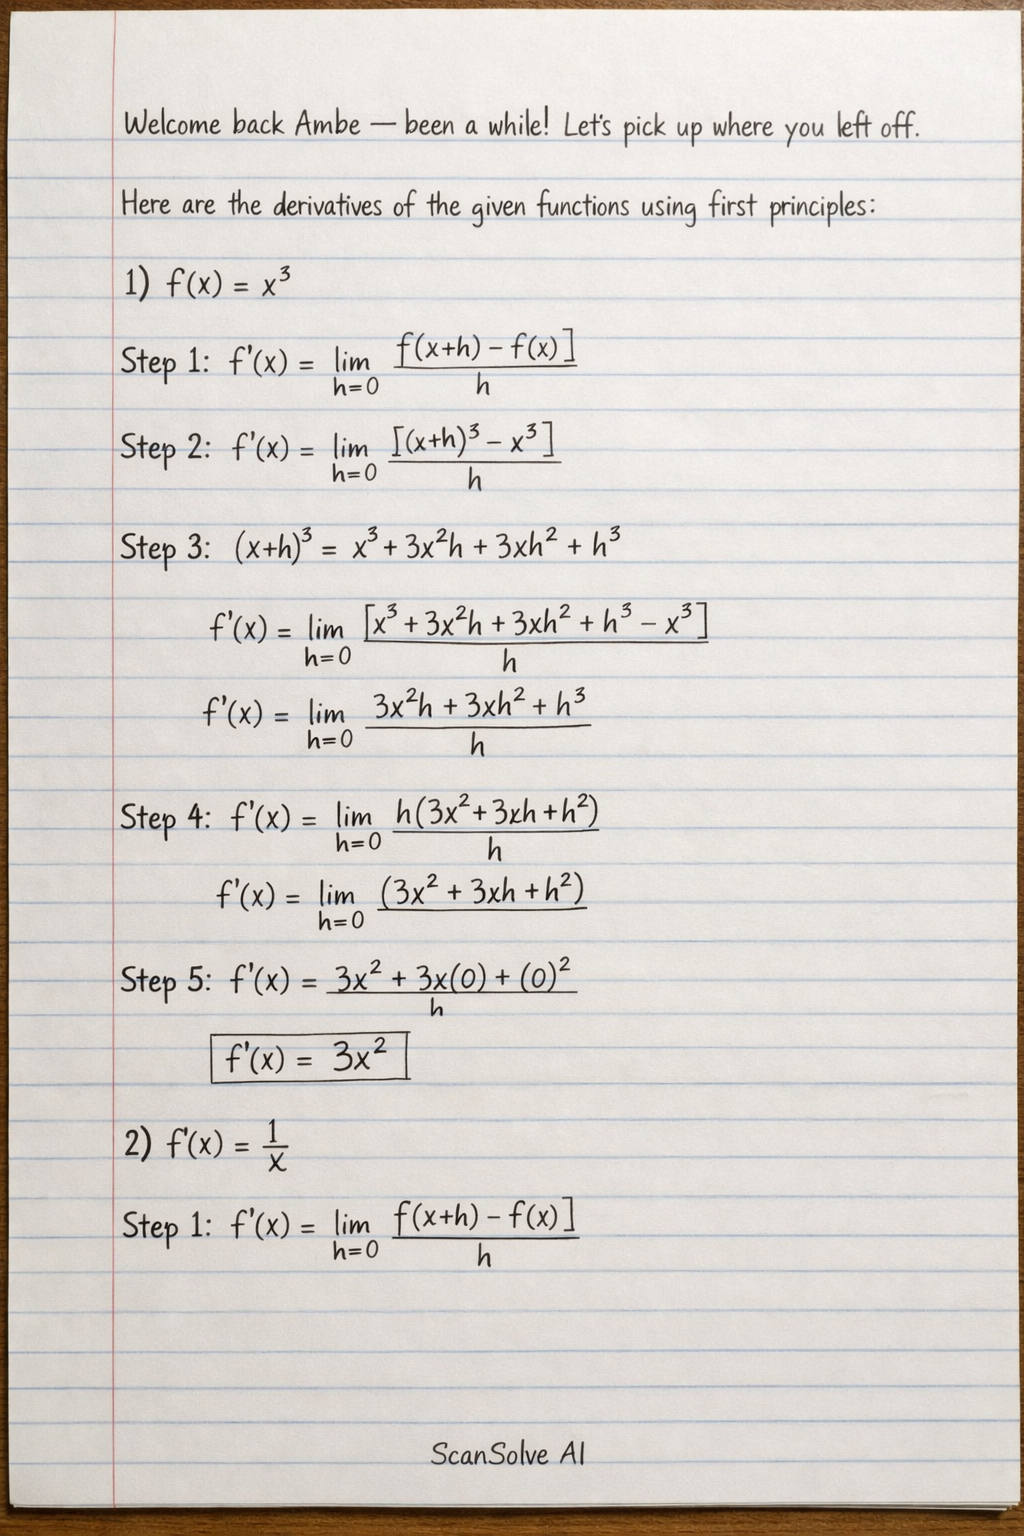 Welcome back Ambe — been a while! Let's pick up where you left off.
Here are the derivatives of the given functions using first principles:
1) f(x) = x³
Step 1: f'(x) = lim h=0 f(x+h) - f(x)] / h
Step 2: f'(x) = lim h=0 [(x+h)³ - x³] / h
Step 3: (x+h)³ = x³ + 3x²h + 3xh² + h³
f'(x) = lim h=0 [x³ + 3x²h + 3xh² + h³ - x³] / h
f'(x) = lim h=0 3x²h + 3xh² + h³ / h
Step 4: f'(x) = lim h=0 h(3x² + 3xh + h²) / h
f'(x) = lim h=0 (3x² + 3xh + h²)
Step 5: f'(x) = 3x² + 3x(0) + (0)² / h
f'(x) = 3x²
2) f'(x) = 1/x
Step 1: f'(x) = lim h=0 f(x+h) - f(x)] / h
ScanSolve AI